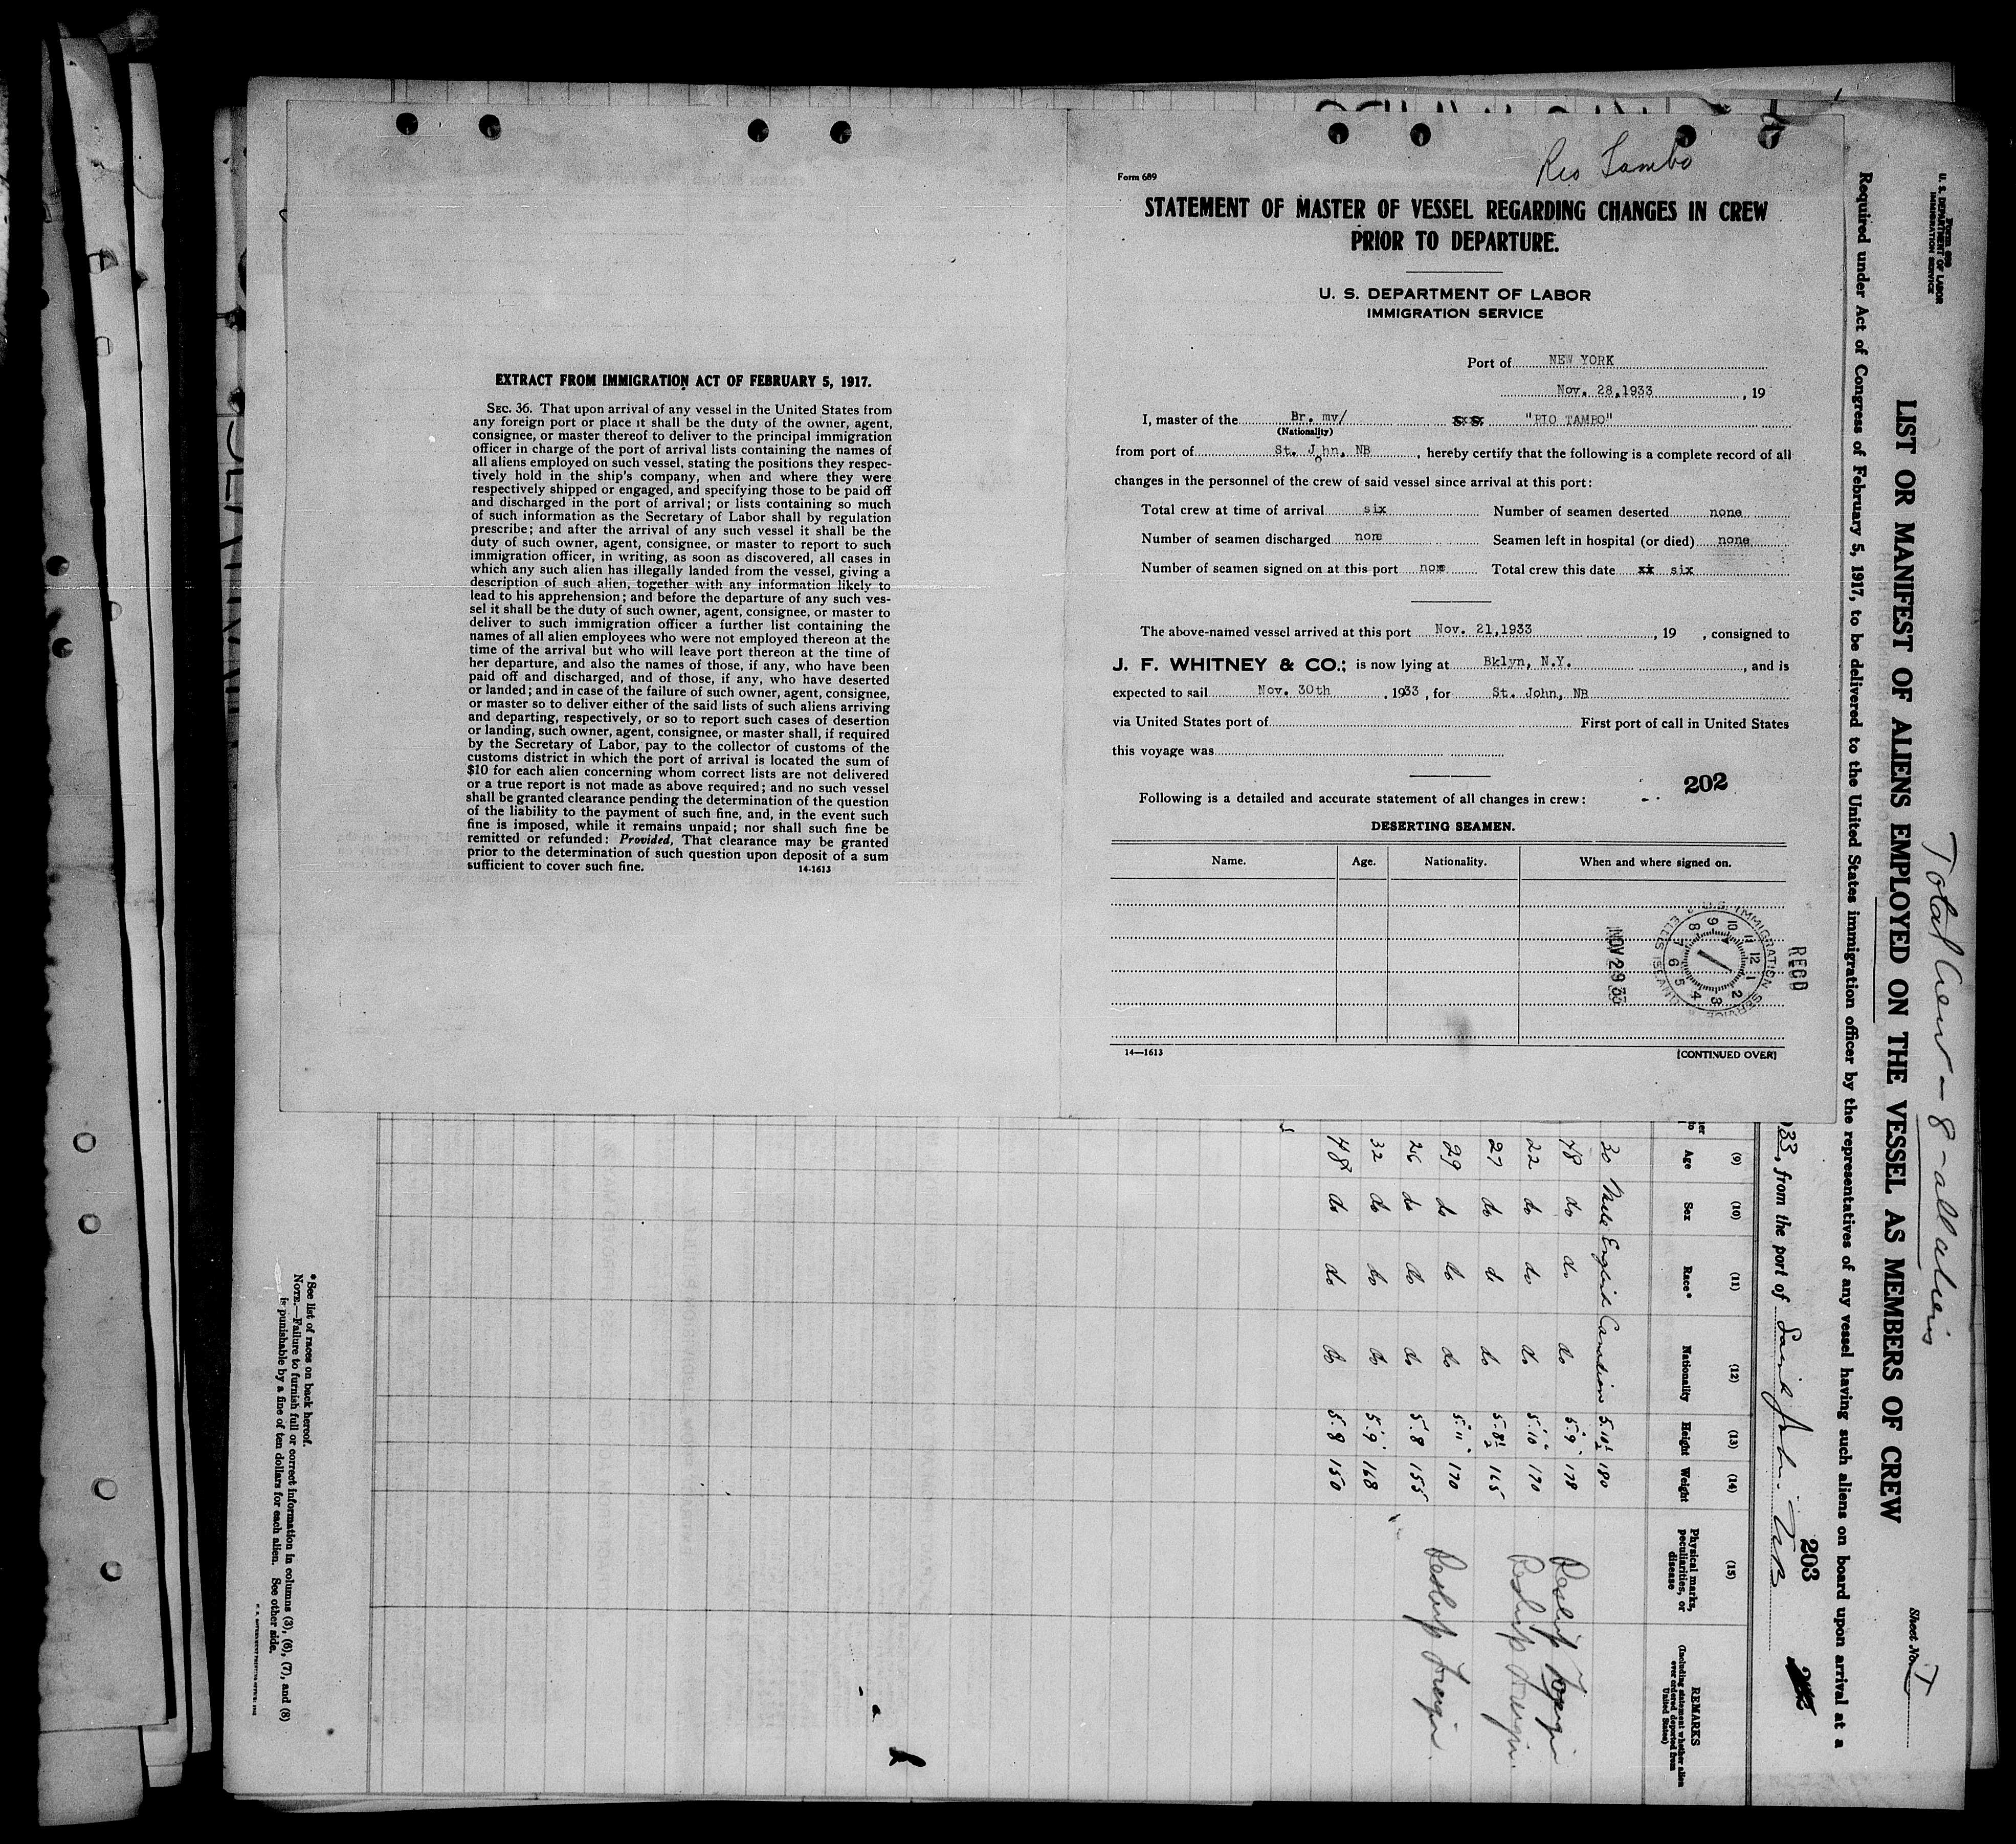 EXTRACT FROM IMMIGRATION ACT OF FEBRUARY 5, 1917.
SEC. 36. That upon arrival of any vessel in the United States from
any foreign port or place it shall be the duty of the owner, agent,
consignee, or master thereof to deliver to the principal immigration
officer in charge of the port of arrival lists containing the names of
all aliens employed on such vessel, stating the positions they respec-
tively hold in the ship's company, when and where they were
respectively shipped or engaged, and specifying those to be paid off
and discharged in the port of arrival; or lists containing so much
of such information as the Secretary of Labor shall by regulation
prescribe; and after the arrival of any such vessel it shall be the
duty of such owner, agent, consignee, or master to report to such
immigration officer, in writing, as soon as discovered, all cases in
which any such alien has illegally landed from the vessel, giving a
description of such alien, together with any information likely to
lead to his apprehension; and before the departure of any such ves-
sel it shall be the duty of such owner, agent, consignee, or master to
deliver to such immigration officer a further list containing the
names of all alien employees who were not employed thereon at the
time of the arrival but who will leave port thereon at the time of
her departure, and also the names of those, if any, who have been
paid off and discharged, and of those, if any, who have deserted
or landed; and in case of the failure of such owner, agent, consignee,
or master so to deliver either of the said lists of such aliens arriving
and departing, respectively, or so to report such cases of desertion
or landing, such owner, agent, consignee, or master shall, if required
by the Secretary of Labor, pay to the collector of customs of the
customs district in which the port of arrival is located the sum of
$10 for each alien concerning whom correct lists are not delivered
or a true report is not made as above required; and no such vessel
shall be granted clearance pending the determination of the question
of the liability to the payment of such fine, and, in the event such
fine is imposed, while it remains unpaid; nor shall such fine be
remitted or refunded: Provided, That clearance may be granted
prior to the determination of such question upon deposit of a sum
sufficient to cover such fine.
14-1613
Rio Tambo
Form 689
STATEMENT OF MASTER OF VESSEL REGARDING CHANGES IN CREW
PRIOR TO DEPARTURE.
U. S. DEPARTMENT OF LABOR
IMMIGRATION SERVICE
Port of NEW YORK
Nov. 28,1933, 19
I, master of the Br. mv/ "RIO TAMBO"
(Nationality)
from port of St. John, NB, hereby certify that the following is a complete record of all
changes in the personnel of the crew of said vessel since arrival at this port:
Total crew at time of arrival six Number of seamen deserted none
Number of seamen discharged none Seamen left in hospital (or died) none
Number of seamen signed on at this port none Total crew this date xx six
The above-named vessel arrived at this port Nov. 21,1933, 19 , consigned to
J. F. WHITNEY & CO.; is now lying at Bklyn, N.Y., and is
expected to sail Nov. 30th, 1933, for St. John, NB
via United States port of First port of call in United States
this voyage was
202
Following is a detailed and accurate statement of all changes in crew:
DESERTING SEAMEN.
Name. Age. Nationality. When and where signed on.
RECD
U. S. IMMIGRATION SERVICE
ELLIS ISLAND
NOV 29 33
14—1613
[CONTINUED OVER]
Form 689
U. S. DEPARTMENT OF LABOR
IMMIGRATION SERVICE
Total Crew - 8 - all aliens
Sheet No. 1
LIST OR MANIFEST OF ALIENS EMPLOYED ON THE VESSEL AS MEMBERS OF CREW
Required under Act of Congress of February 5, 1917, to be delivered to the United States immigration officer by the representatives of any vessel having such aliens on board upon arrival at a
203
33, from the port of Saint John. N.B
(9) (10) (11) (12) (13) (14) (15)
Age Sex Race* Nationality Height Weight Physical marks, peculiarities, or disease
REMARKS
(Including statement whether alien ever ordered deported from United States)
30 Male English Canadian 5.10½ 180
48 do do do 5.9 178
22 do do do 5.10 170
27 do do do 5.8½ 165
29 do do do 5.11 170
26 do do do 5.8 155
32 do do do 5.9 168
48 do do do 5.8 150
*See list of races on back hereof.
NOTE.—Failure to furnish full or correct information in columns (3), (6), (7), and (8)
is punishable by a fine of ten dollars for each alien. See other side.